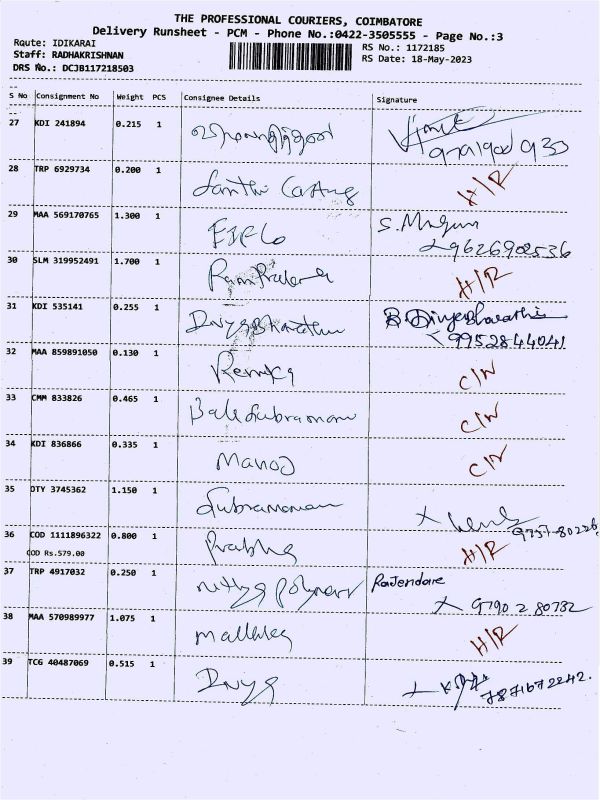 THE PROFESSIONAL COURIERS, COIMBATORE
Delivery Runsheet - PCM - Phone No.:0422-3505555 - Page No.:3
Route: IDIKARAI
Staff: RADHAKRISHNAN
DRS No.: DCJB117218503
RS No.: 1172185
RS Date: 18-May-2023
S No Consignment No Weight PCS Consignee Details Signature
27 KDI 241894 0.215 1
28 TRP 6929734 0.200 1 Santhi Casting H/R
29 MAA 569170765 1.300 1 S. Mugun
9626902536
30 SLM 319952491 1.700 1 H/R
31 KDI 535141 0.255 1 Divya Bharathi B. Divyabharathi
9952844041
32 MAA 859891050 0.130 1 Renuka C/N
33 CMM 833826 0.465 1 Bala Subramani C/N
34 KDI 836866 0.335 1 Manoj C/N
35 OTY 3745362 1.150 1 Subramaniam
9757-80226
36 COD 1111896322 0.800 1 Prabha H/R
COD Rs.579.00
37 TRP 4917032 0.250 1 Nithya Polymer Rajendare
9790280782
38 MAA 570989977 1.075 1 H/R
39 TCG 40487069 0.515 1 Divya
7871672242.